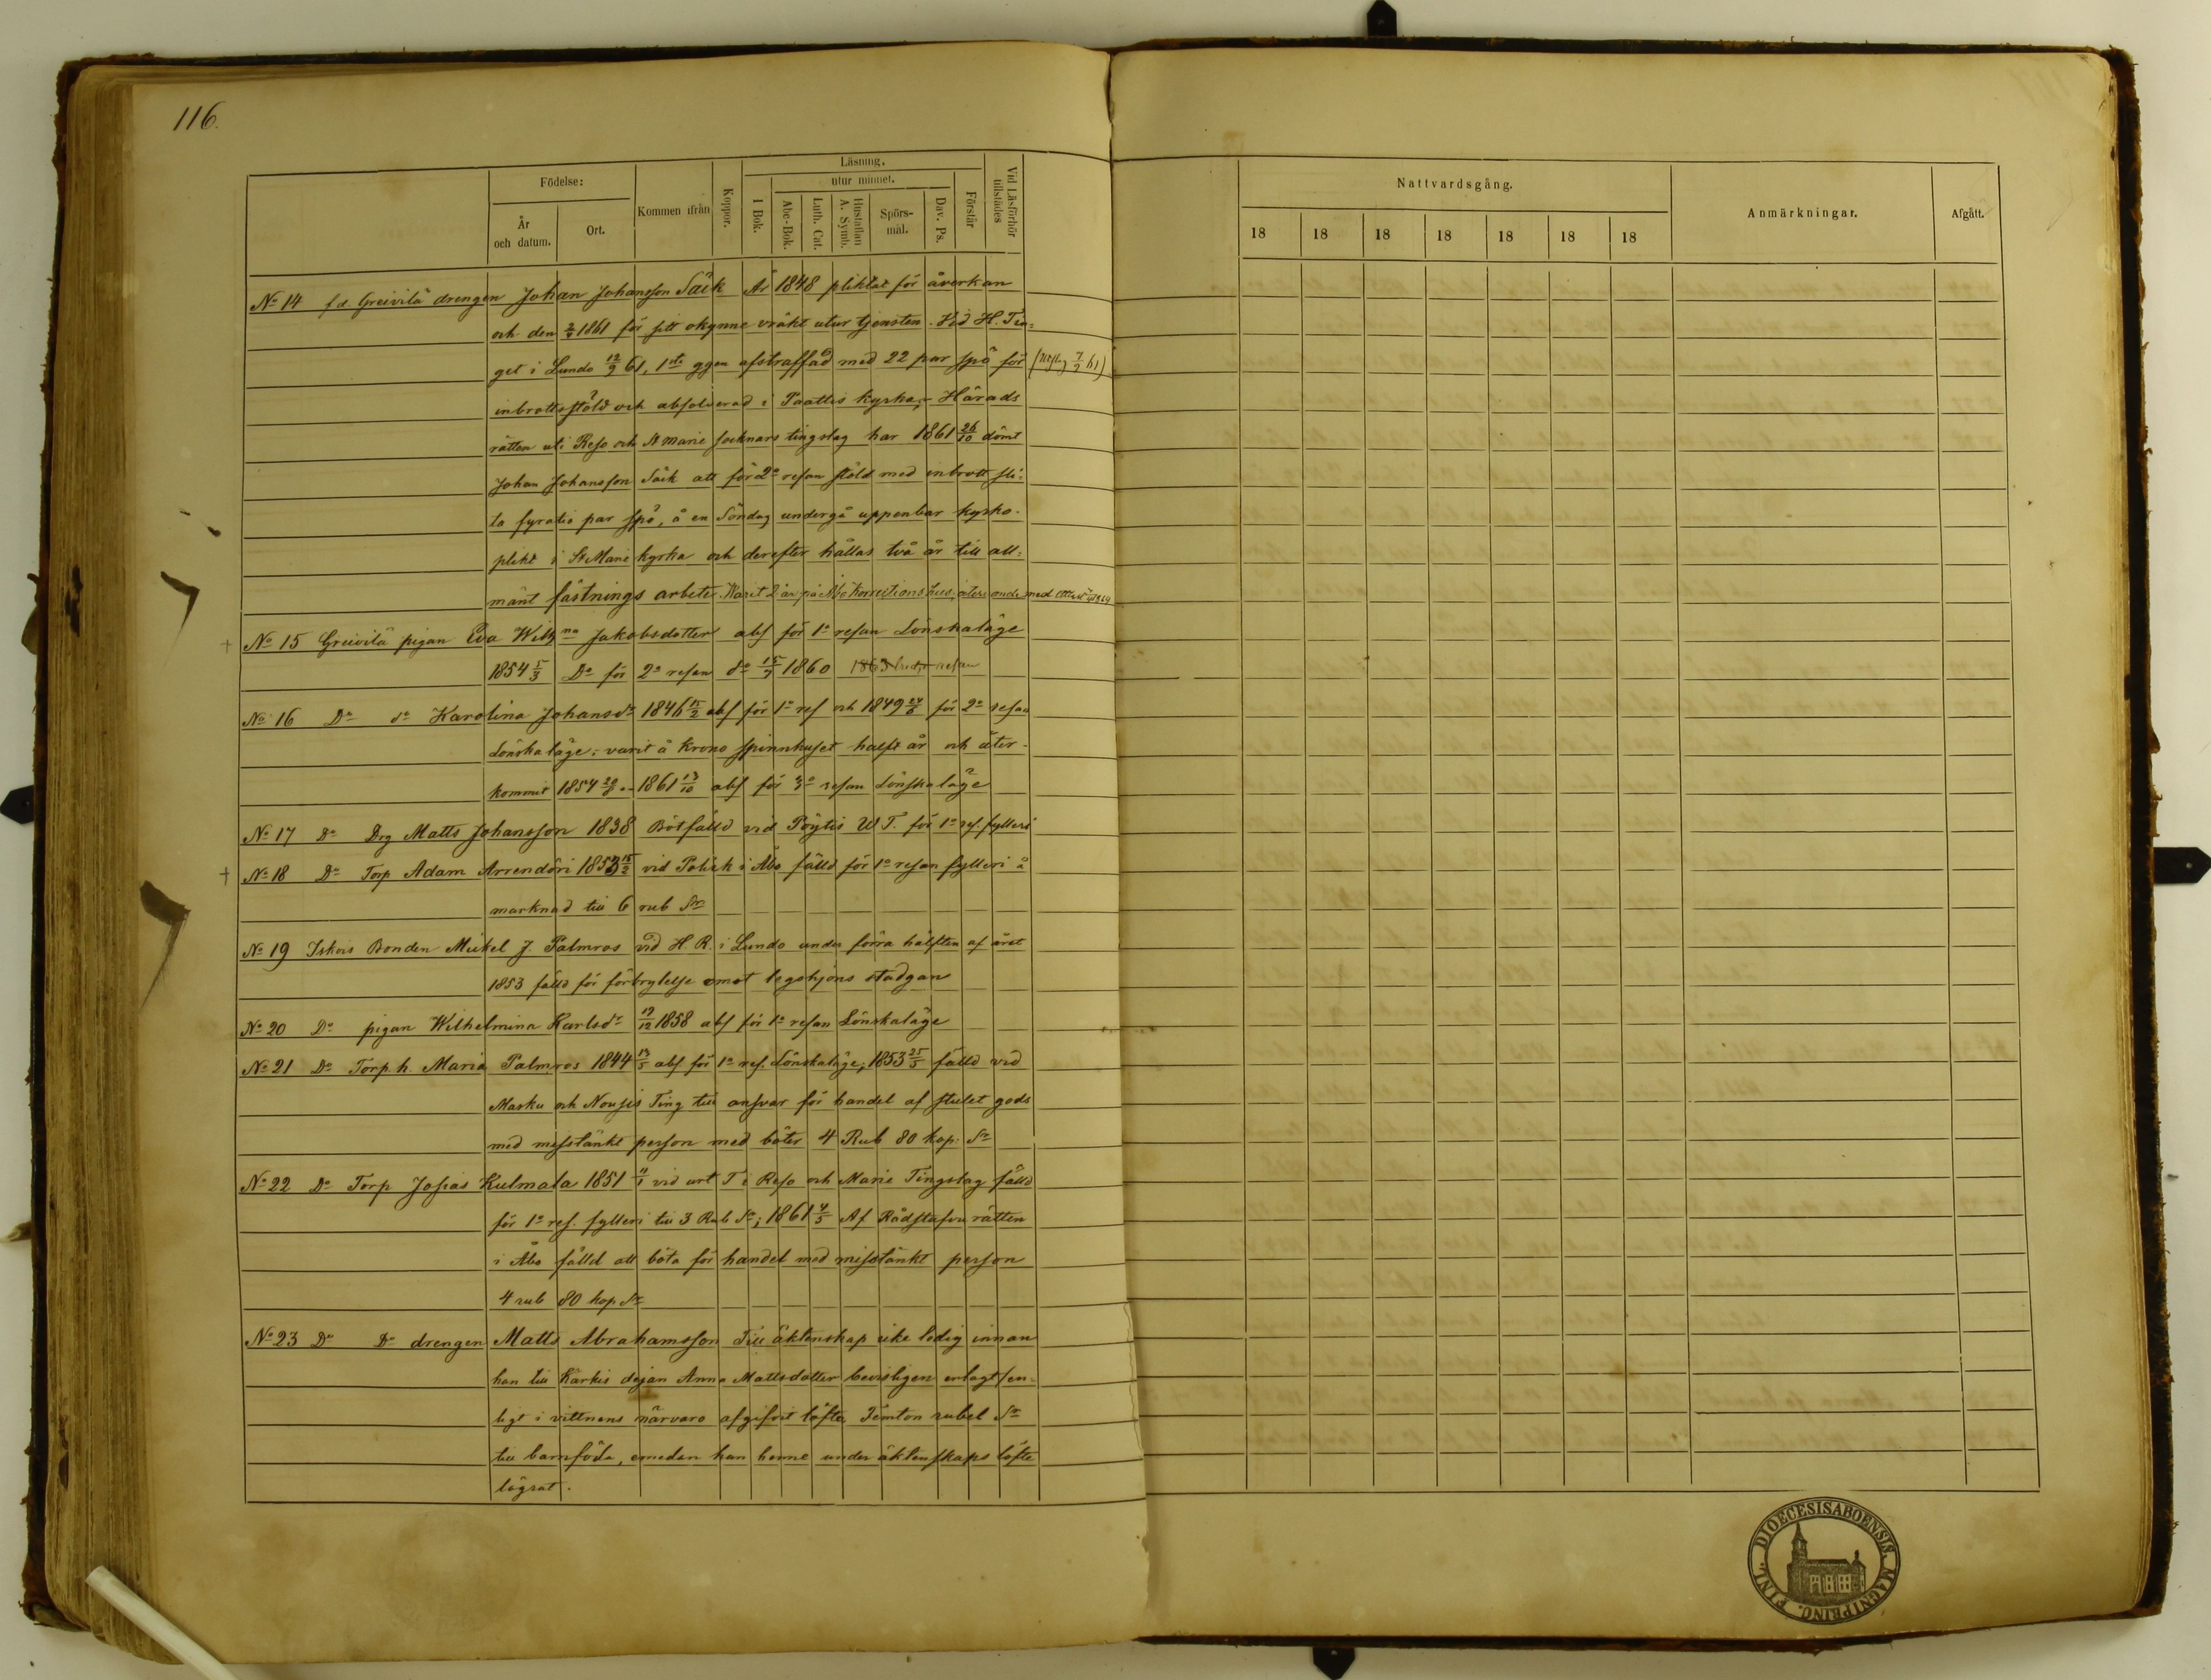 116.
Födelse:
År och datum.
Ort.
Kommen ifrån
Koppor.
Läsning.
utur minnet.
I Bok.
Abc-Bok.
Luth. Cat.
Hustaflan A. Symb.
Spörs-mål.
Dav. Ps.
Förstår
Vid Läsförhör tillstädes
Nattvardsgång.
18 18 18 18 18 18 18
Anmärkningar.
Afgått.
No 14 f d. Greivilä drengen Johan Johansson Säik År 1848 pliktat för åverkan
och den 1861 för sitt okynne vräkt utur tjensten. Vid H. Tin-
get i Lundo 12/9 61, 1sta ggen afstraffad med 22 par spö för
inbrottsstöld och absolverad i Paattis kyrka; Härads
rätten uti Reso och St Marie socknars tingslag har 1861 26/10 dömt
Johan Johansson Säik att för 2a resan stöld med inbrott sli-
ta fyratio par spö, å en Söndag undergå uppenbar kyrko-
plikt i St Marie kyrka och derefter hållas två år till all-
mänt fästnings arbete. Varit 2 år på Åbo Korrections hus,
+ No 15 Greivilä pigan Eva Wilhna Jakobsdotter abs för 1a resan Lönskaläge
1854 5/3 Do för 2a resan do 15/7 1860
No 16 Do do Karolina Johansdr 1846 15/2 abs för 1a res och 1849 24/6 för 2a resan
Lönskaläge; varit å Krono spinnhuset halft år och åter-
kommit 1854 1861 13/10 abs för 3e resan Lönskaläge
No 17 Do Drg Matts Johansson 1838 Bötfälld vid Pöytis W T. för 1a res. fylleri
+ No 18 Do Torp Adam Arrendöri 1853 15/2 vid Politik i Åbo fälld för 1a resan fylleri å
marknad till 6 rub Sr
No 19 Iskois Bonden Mickel J. Palmros vid H R. i Lundo under förra hälften af året
1853 fälld för förbrytelse emot legohjons stadgan
No 20 Do pigan Wilhelmina Karlsdr 19/12 1858 abs för 1a resan Lönskaläge
No 21 Do Torp h. Maria Palmros 1844 13/5 abs för 1a res. Lönskaläge; 1853 25/5 fälld vid
Masku och Nousis Ting till ansvar för handel af stulet gods
med misstänkt person med böter 4 Rub 80 kop. Sr
No 22 Do Torp Josias Kulmala 1851 11/1 vid urt T i Reso och Marie Tingslag fälld
för 1a res. fylleri till 3 Rub Sr; 1861 4/5 Af Rådstufvu rätten
i Åbo fälld att böta för handel med misstänkt person
4 rub 80 kop Sr
No 23 Do Do drengen Matts Abrahamsson Till äktenskap icke ledig innan
han till Kärkis dejan Anna Mattsdotter bevisligen erlagt, en-
ligt i vittnens närvaro afgifvit löfte, Femton rubel Sr
till barnföda, emedan han henne under äktenskaps löfte
lägrat.
FINL. DIOECESIS ABOENSIS. MAGNI PRINC.